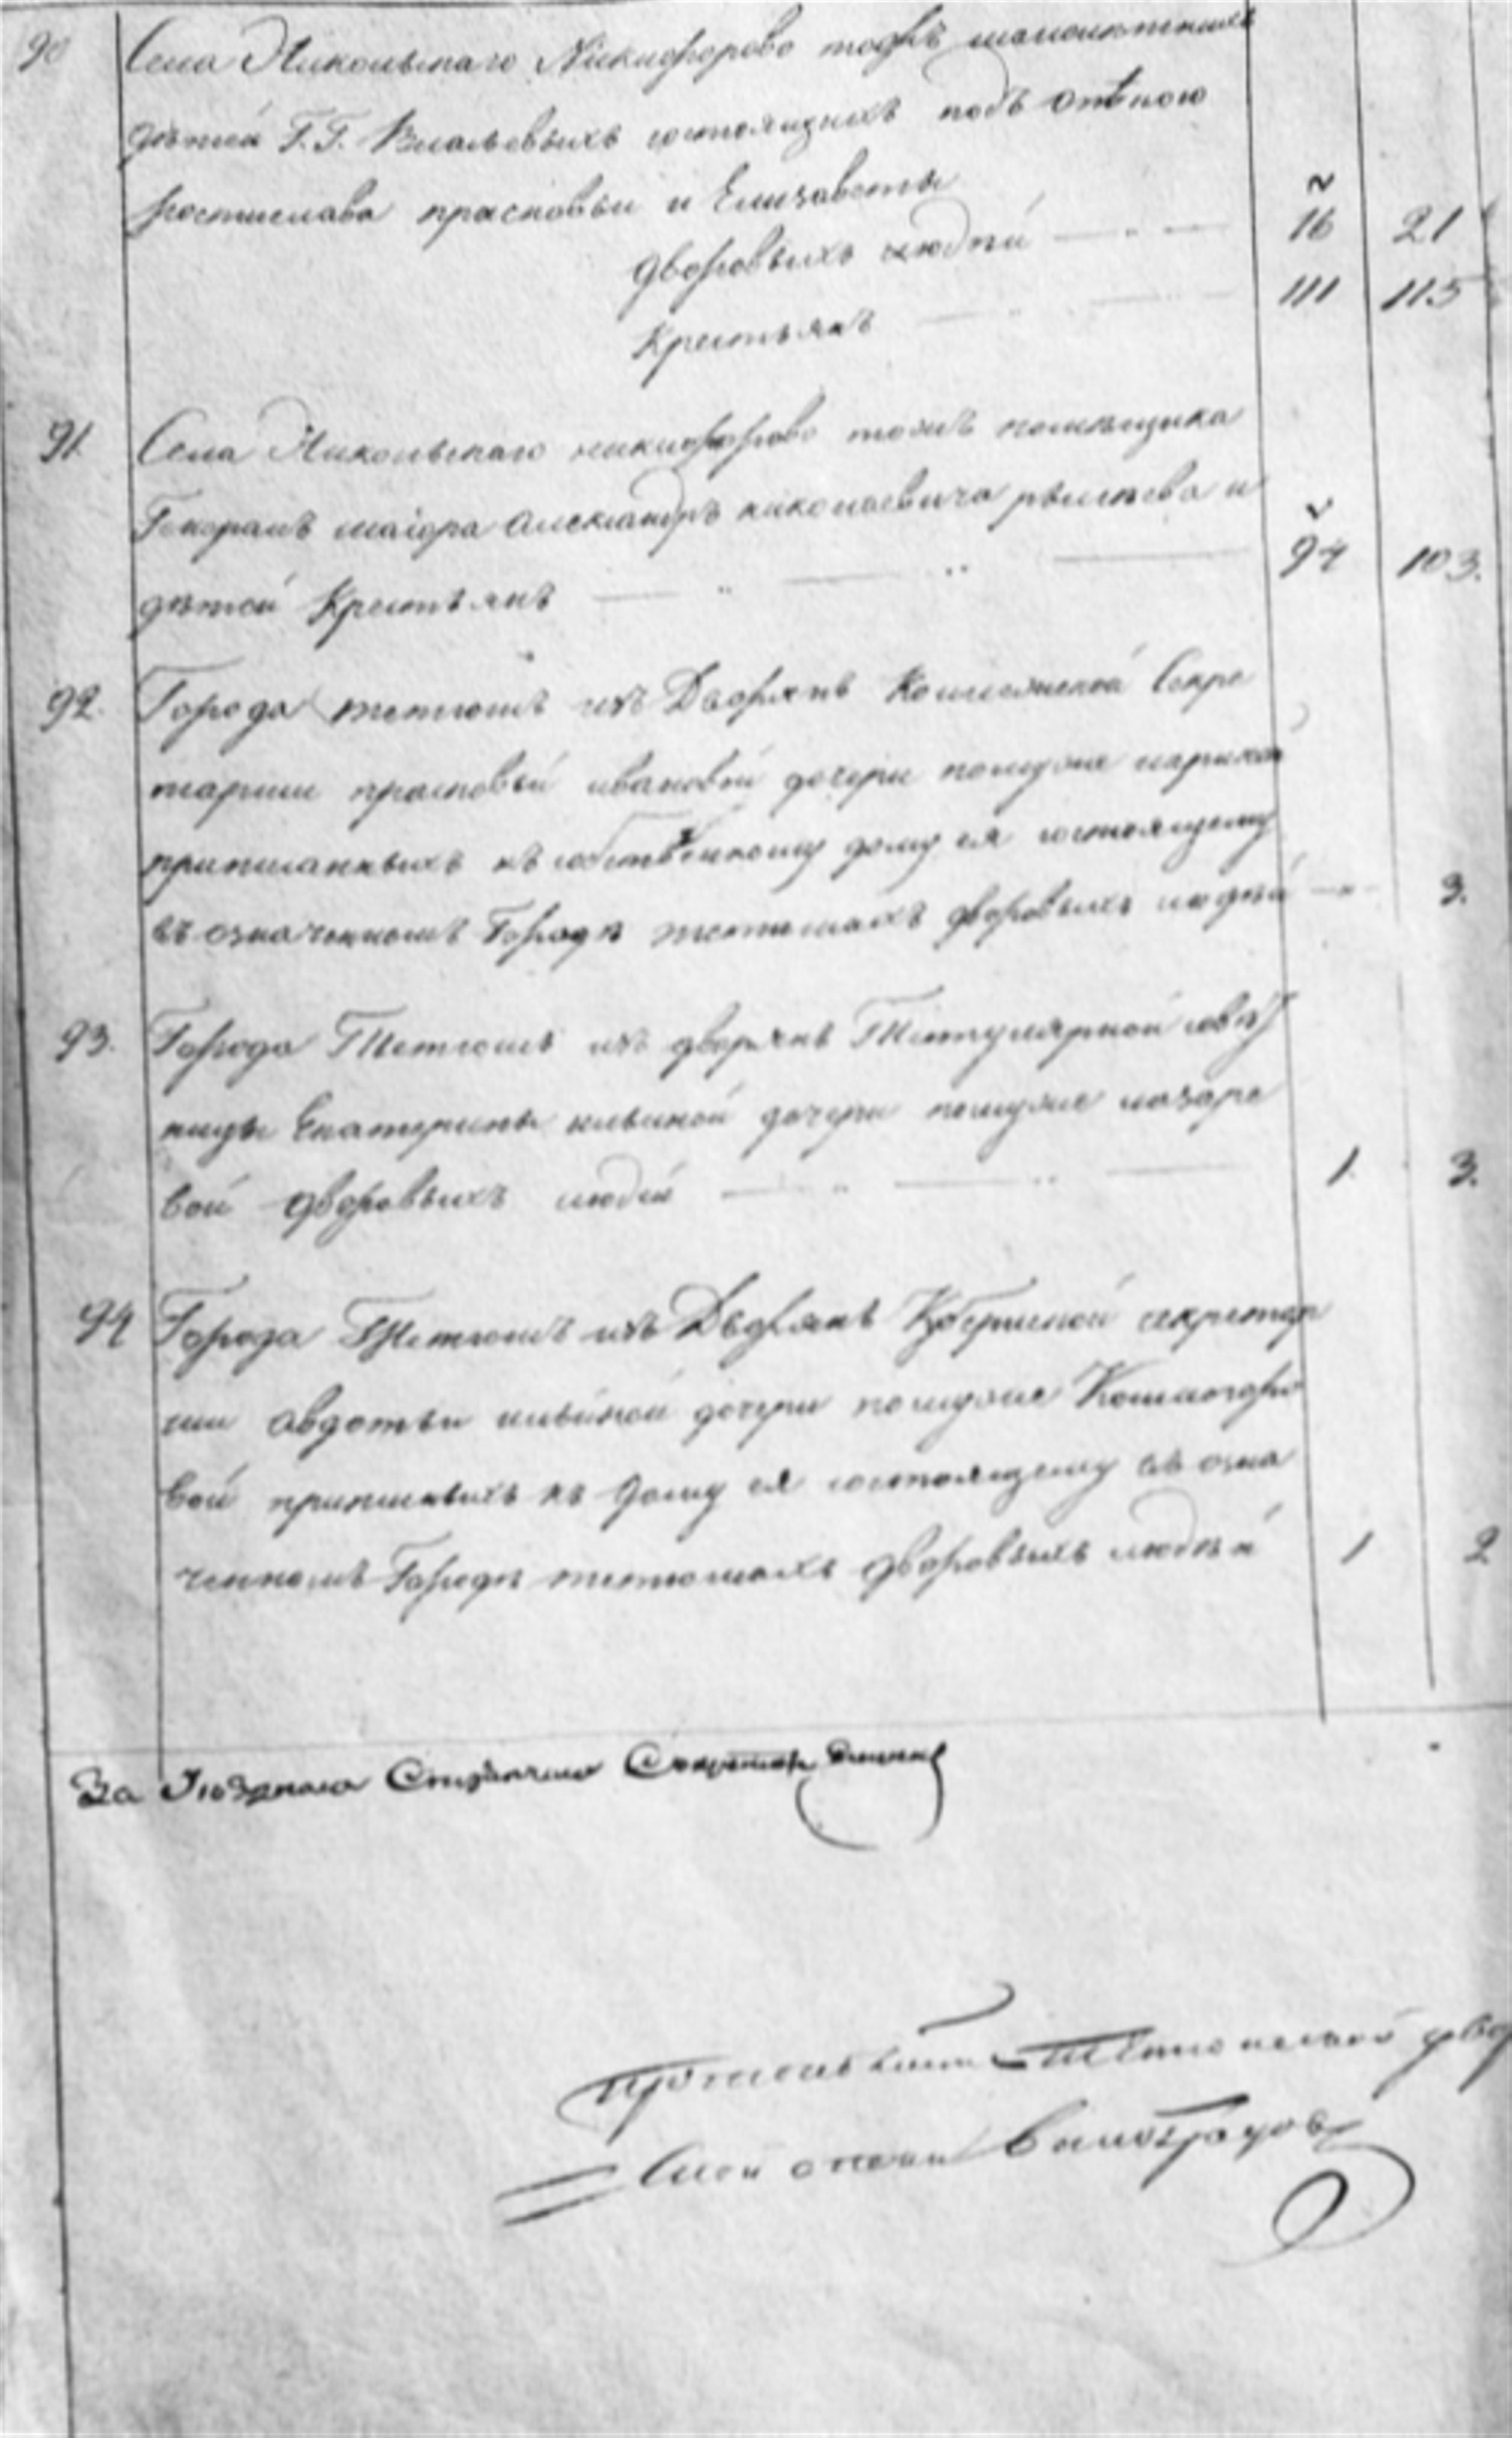 90 Села Никольскаго Никифорово тожъ малолѣтныхъ
дѣтей Г.Г. состоящихъ подъ опѣкою
Ростислава прасковьи и Елизаветы
дворовыхъ людѣй 16 21
Крестьянъ 111 115
91. Села Никольскаго никифорово тожъ помѣщика
Генералъ маіора Александръ николаевича рылѣева и
дѣтей Крестьянъ 94 103.
92. Города тетюшъ изъ Дворянъ Колежской Секре
тарши прасковьи ивановой дочери помужѣ
приписанныхъ къ собственному дому ея состоящему
въ означенномъ Городѣ тетюшахъ дворовыхъ людѣй 3.
93. Города Тетюшъ изъ дворянъ Титулярной совѣт
ницы Екатерины ильиной дочери помужѣ лазаре
вой дворовыхъ людей 1. 3.
94 Города Тетюшъ изъ Дворянъ Губернской секретар
ши Авдотьи ильиной дочери помужѣ
вой приписныхъ къ дому ея состоящему въ озна
ченномъ Городѣ тетюшахъ дворовыхъ людѣй 1 2
За Уѣзднаго Стряпчаго Секретарь
двор
ской опеки